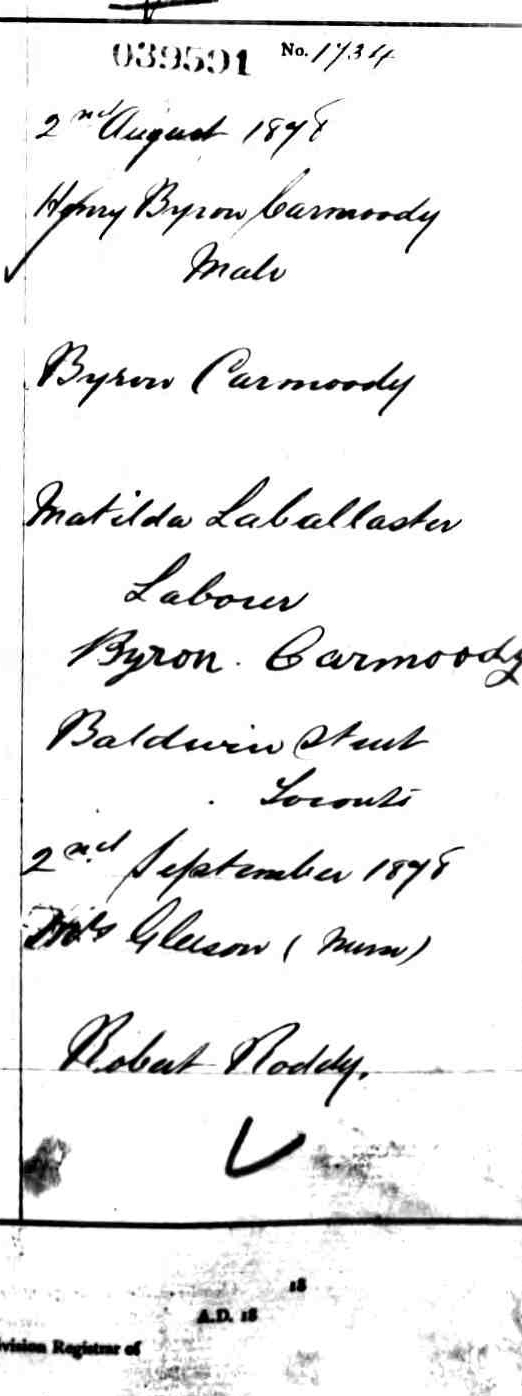 039591 No. 1734
2nd August 1878
Henry Byron Carmoody
Male
Byron Carmoody
Matilda Laballaster
Labourer
Byron. Carmoody
Baldwin Street
Toronto
2nd September 1878
Mrs Gleeson (Nurse)
Robert Roddy.
18
A.D. 18
vision Registrar of